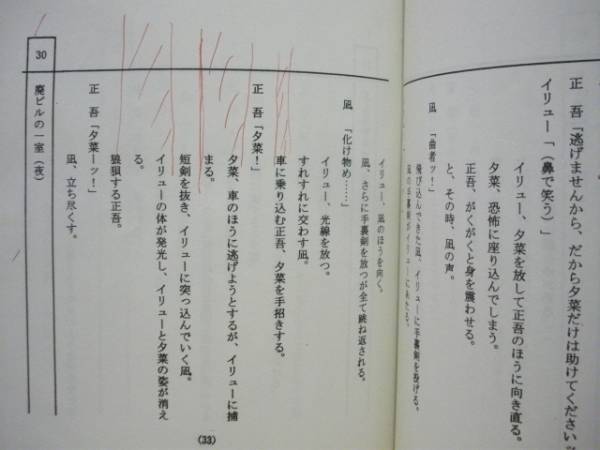 正　吾「逃げませんから、だから夕菜だけは助けてくださいッ
イリュー「（鼻で笑う）」
イリュー、夕菜を放して正吾のほうに向き直る。
夕菜、恐怖に座り込んでしまう。
正吾、がくがくと身を震わせる。
と、その時、凪の声。
凪　「曲者ッ！」
飛び込んできた凪、イリューに手裏剣を投げる。
凪の手裏剣がイリューに
イリュー、凪のほうを向く。
凪、さらに手裏剣を放つが全て跳ね返される。
凪　「化け物め……」
イリュー、光線を放つ。
すれすれに交わす凪。
車に乗り込む正吾、夕菜を手招きする。
正　吾「夕菜！」
夕菜、車のほうに逃げようとするが、イリューに捕
まる。
短剣を抜き、イリューに突っ込んでいく凪。
イリューの体が発光し、イリューと夕菜の姿が消え
る。
狼狽する正吾。
正　吾「夕菜ーッ！」
凪、立ち尽くす。
30　廃ビルの一室（夜）
(33)